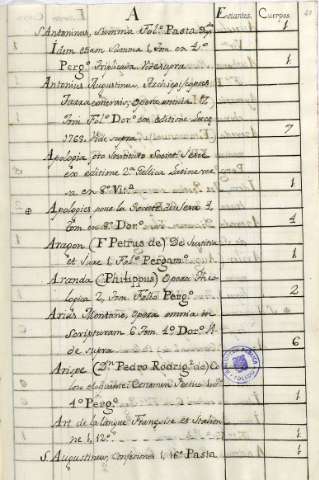 A Estantes. Cuerpos.
S. Antoninus, Summa Fol.º Pasta 1
Idem etiam Summa 1, tom en 4.º
Perg.º triplicada Vide supra
Antonius Augustinus, Archiepiscopus
Tarraconensis, Opera omnia
tom Fol.º Dor.º edition
1765. Vide supra 7
Apologia pro Instituto Societ. Jesu
ex editione 2.ª Gallica Latine
en 8.º 1
Apologies pour la 
tom en 8.º Dor.º 1
Aragon (F Petrus de) De Justitia
et Jure 1, Fol.º Pergam.º 1
Aranda (Philippus) Opera Theo
logica 2, tom. Folio Perg.º 2
Arias Montano, opera omnia in
Scripturam 6 tom. 4.º Dor.º
de supra 6
Arispe (Dn Pedro Rodrig.º de)
Certamen Poetico 1,
4.º Perg.º 1
Art de la langue Françoise et Italien
ne 1, 12.º 1
S. Augustinus, Confesiones 1, 16.º Pasta 1